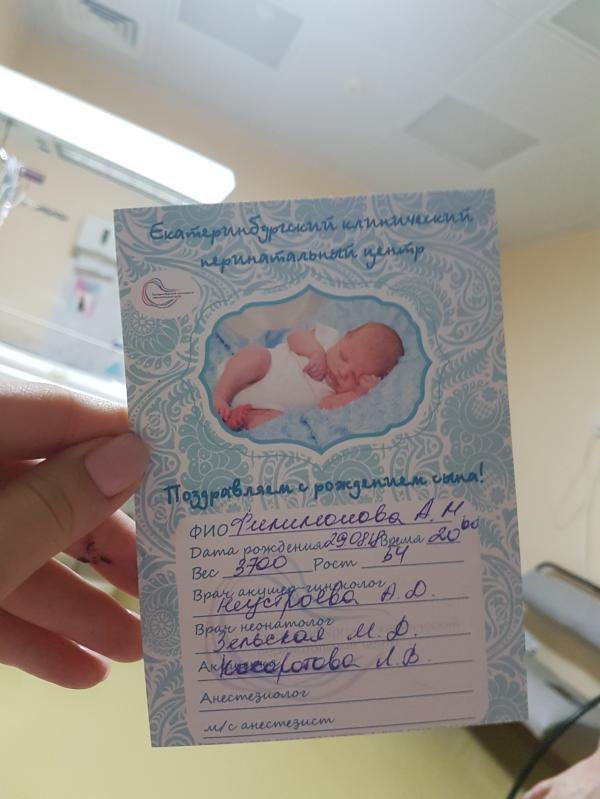 Екатеринбургский клинический
перинатальный центр
Поздравляем с рождением сына!
ФИО Филимонова А. М
Дата рождения 29.08.18 Время 20⁰⁰
Вес 3700 Рост 54
Врач акушер-гинеколог
Неустроева А. Д.
Врач неонатолог
Зельская М. Д.
Акушерка
Л. В.
Анестезиолог
м/с анестезист